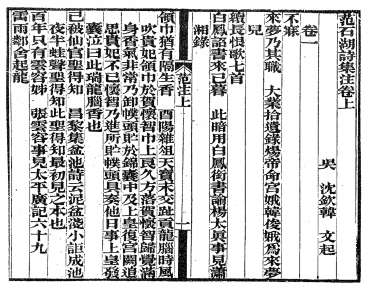 范石湖詩集注卷上
吳 沈欽韓 文起
卷一
不寐
來夢乃其職 大業拾遺錄煬帝命宮娥韓俊娥爲來夢
兒
續長恨歌七首
白鳳詔書來已暮 此暗用白鳳銜書論楊太眞事見瀟
湘錄
范注上
一
領巾猶自隔生香 酉陽雜俎天寶末交趾貢龍腦時風
吹貴妃領巾於賀懷智巾上良久方落賀懷智歸覺滿
身香氣非常乃卸幞頭貯於錦囊中及上皇復宮闕追
思貴妃不已懷智乃進所貯幞頭具奏他日事上皇發
囊泣曰此瑞龍腦香也
已被仙官聖得知 昌黎集盆池詩云泥盆淺小詎成池
夜半蛙聲聖得知此聖得知最初見之本也
百年只有雲容姊 張雲容事見太平廣記六十九
雷雨鄰舍起龍